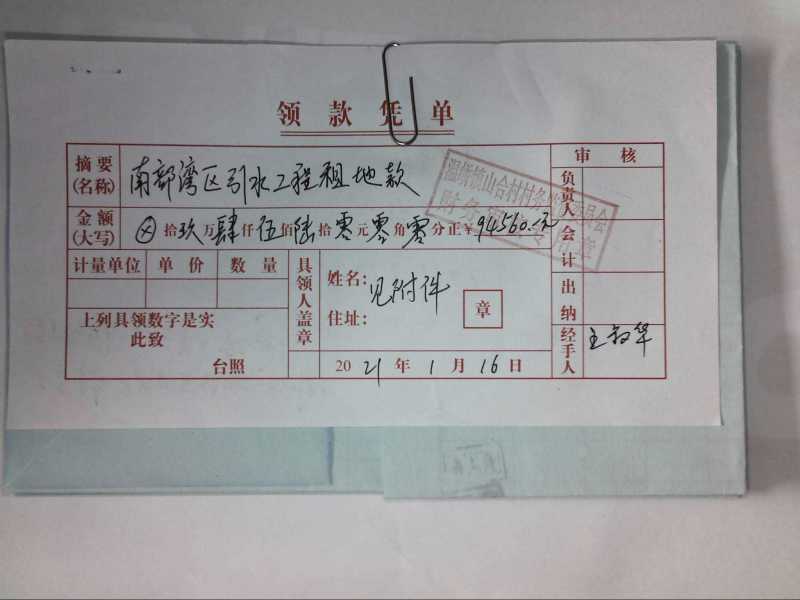 领款凭单
摘要(名称) 南部湾区引水工程租地款 审核
金额(大写) ⊗拾玖万肆仟伍佰陆拾零元零角零分正¥94560.元
计量单位 单价 数量
上列具领数字是实
此致
台照
具领人盖章
姓名: 见附件
住址:
章
2021年1月16日
负责人
会计
出纳
经手人
财务